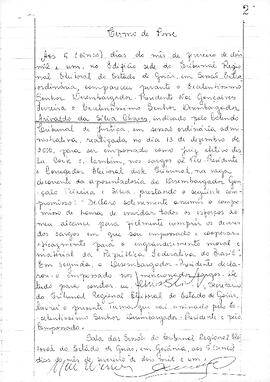 2
Termo de Posse
Aos 5 (cinco) dias do mês de fevereiro de dois
mil e um, no Edifício sede do Tribunal Regio
nal Eleitoral do Estado de Goiás, em Sessão Extra
ordinária, compareceu perante o Excelentíssimo
Senhor Desembargador Presidente Noé Gonçalves
Ferreira o Excelentíssimo Senhor Desembargador
da Silva Chaves, indicado pelo Colendo
Tribunal de Justiça, em sessão ordinária
administrativa, realizada no dia 13 de dezembro de
2000, para ser empossado como juiz efetivo des
ta Corte e, também, nos cargos de Vice-Presidente
e Corregedor Eleitoral deste Tribunal, na vaga
decorrente da aposentadoria do Desembargador
Teixeira e Silva, prestando o seguinte com
promisso: "Declaro solenemente assumir o compro
misso de honra de envidar todos os esforços ao
meu alcance para fielmente cumprir os deveres
dos cargos em que sou empossado e cooperar
eficazmente para o engrandecimento moral e
material da República Federativa do Brasil".
Em seguida, o Desembargador-Presidente decla
rou o empossado nos mencionados cargos. De
tudo para constar eu, Secretária
do Tribunal Regional Eleitoral do Estado de Goiás,
lavrei o presente termo, que vai assinado pelo Ex
celentíssimo Senhor Desembargador-Presidente e pelo
Empossado.
Sala das Sessões do Tribunal Regional Elei
toral do Estado de Goiás, em Goiânia, aos 5 (cinco)
dias do mês de fevereiro de dois mil e um.